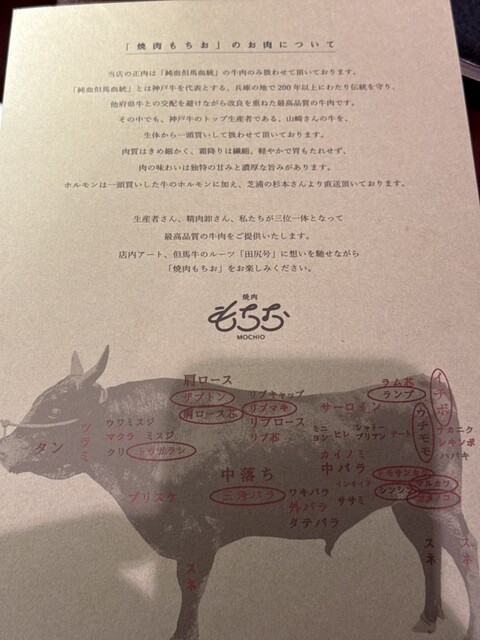 「焼肉もちお」のお肉について
当店の正肉は「純血但馬血統」の牛肉のみ扱わせて頂いております。
「純血但馬血統」とは神戸牛を代表とする、兵庫の地で200年以上にわたり伝統を守り、
他府県牛との交配を避けながら改良を重ねた最高品質の牛肉です。
その中でも、神戸牛のトップ生産者である、山崎さんの牛を、
生体から一頭買いして扱わせて頂いております。
肉質はきめ細かく、霜降りは繊細、軽やかで胃もたれせず、
肉の味わいは独特の甘みと濃厚な旨みがあります。
ホルモンは一頭買いした牛のホルモンに加え、芝浦の杉本さんより直送頂いております。
生産者さん、精肉卸さん、私たちが三位一体となって
最高品質の牛肉をご提供いたします。
店内アート、但馬牛のルーツ「田尻号」に想いを馳せながら
「焼肉もちお」をお楽しみください。
焼肉
もちお
MOCHIO
肩ロース
ザブトン
肩ロース芯
リブキャップ
リブマキ
リブロース
リブ芯
サーロイン
ラム芯
ランプ
イチボ
ウチモモ
ツラミ
タン
ウワミスジ
マクラ ミスジ
クリ トウガラシ
ミニヨン
ヒレ
シャトーブリアン
テート
ナカニク
シキンボ
ハバキ
カイノミ
中バラ
中落ち
三角バラ
ブリスケ
ワキバラ
外バラ
タテバラ
インサイド
ササミ
トモサンカク
シンシン
マルカワ
スネ
スネ
スネ